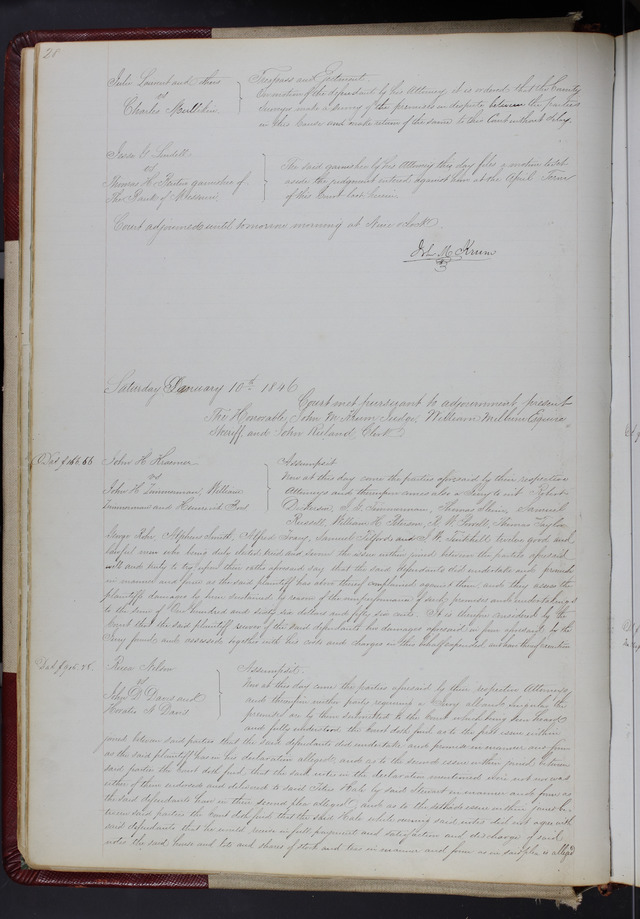 28
Julie Louvel and others
vs
Charles Mullikin
Trespass and Ejectment
On motion of the defendant by his Attorney it is ordered that the County
Surveyor make a survey of the premises in dispute between the parties
in this cause and make return of the same to this Court without delay.
Jesse G Lindell
vs
Thomas H. garnishee of
The Bank of Missouri
The said garnishee by his Attorney this day files a motion to set
aside the judgment entered against him at the April Term
of this Court last herein
Court adjourned until tomorrow morning at Nine o'clock.
Jno. M. Krum
Saturday January 10th 1846
Court met pursuant to adjournment present
The Honorable John M Krum Judge, William Milburn Esquire
Sheriff and John Ruland Clerk
Dbt $166.56
John H Kraemer
vs
John H Timmerman, William
Timmerman and Heinrich
Assumpsit
Now at this day come the parties aforesaid by their respective
Attorneys and thereupon comes also a Jury to wit
Samuel
Russell, William H. Peterson, R. W. Powell, Thomas Taylor
George Stephen Smith, Alfred Tracy, Samuel and twelve good and
lawful men who being duly elected tried and sworn the issue within joined between the parties aforesaid
well and truly to try upon their oaths aforesaid say that the said defendants did undertake and promise
in manner and form as the said plaintiff has above thereof complained against them, and they assess the
plaintiffs damages by him sustained by reason of the non performance of such promises and undertakings
to the sum of One hundred and sixty six dollars and fifty six cents. It is therefore considered by the
Court that the said plaintiff recover of the said defendants his damages aforesaid in form aforesaid by the
Jury found and assessed together with his costs and charges in this behalf expended and have thereof execution
Dbt $
Nelson
vs
John D. Davis and
Horatio N Davis
Assumpsit.
Now at this day come the parties aforesaid by their respective Attorneys
and thereupon neither party requiring a Jury all and singular the
premises are by them submitted to the Court which being seen heard
and fully understood the Court doth find as to the first issue within
joined between said parties that the said defendants did undertake and promise in manner and form
as the said plaintiff has in his declaration alleged, and as to the second issue within joined between
said parties the Court doth find that the said notes in the declaration mentioned were not nor was
either of them endorsed and delivered to said Titus Hale by said Stewart in manner and form as
the said defendants have in their second plea alleged, and as to the issue within joined be-
tween said parties the Court doth find that the said Hale while owning said notes did not agree with
said defendants that he would receive in full payment and satisfaction and discharge of said
notes the said house and lots and shares of stock and in manner and form as in said plea is alleged